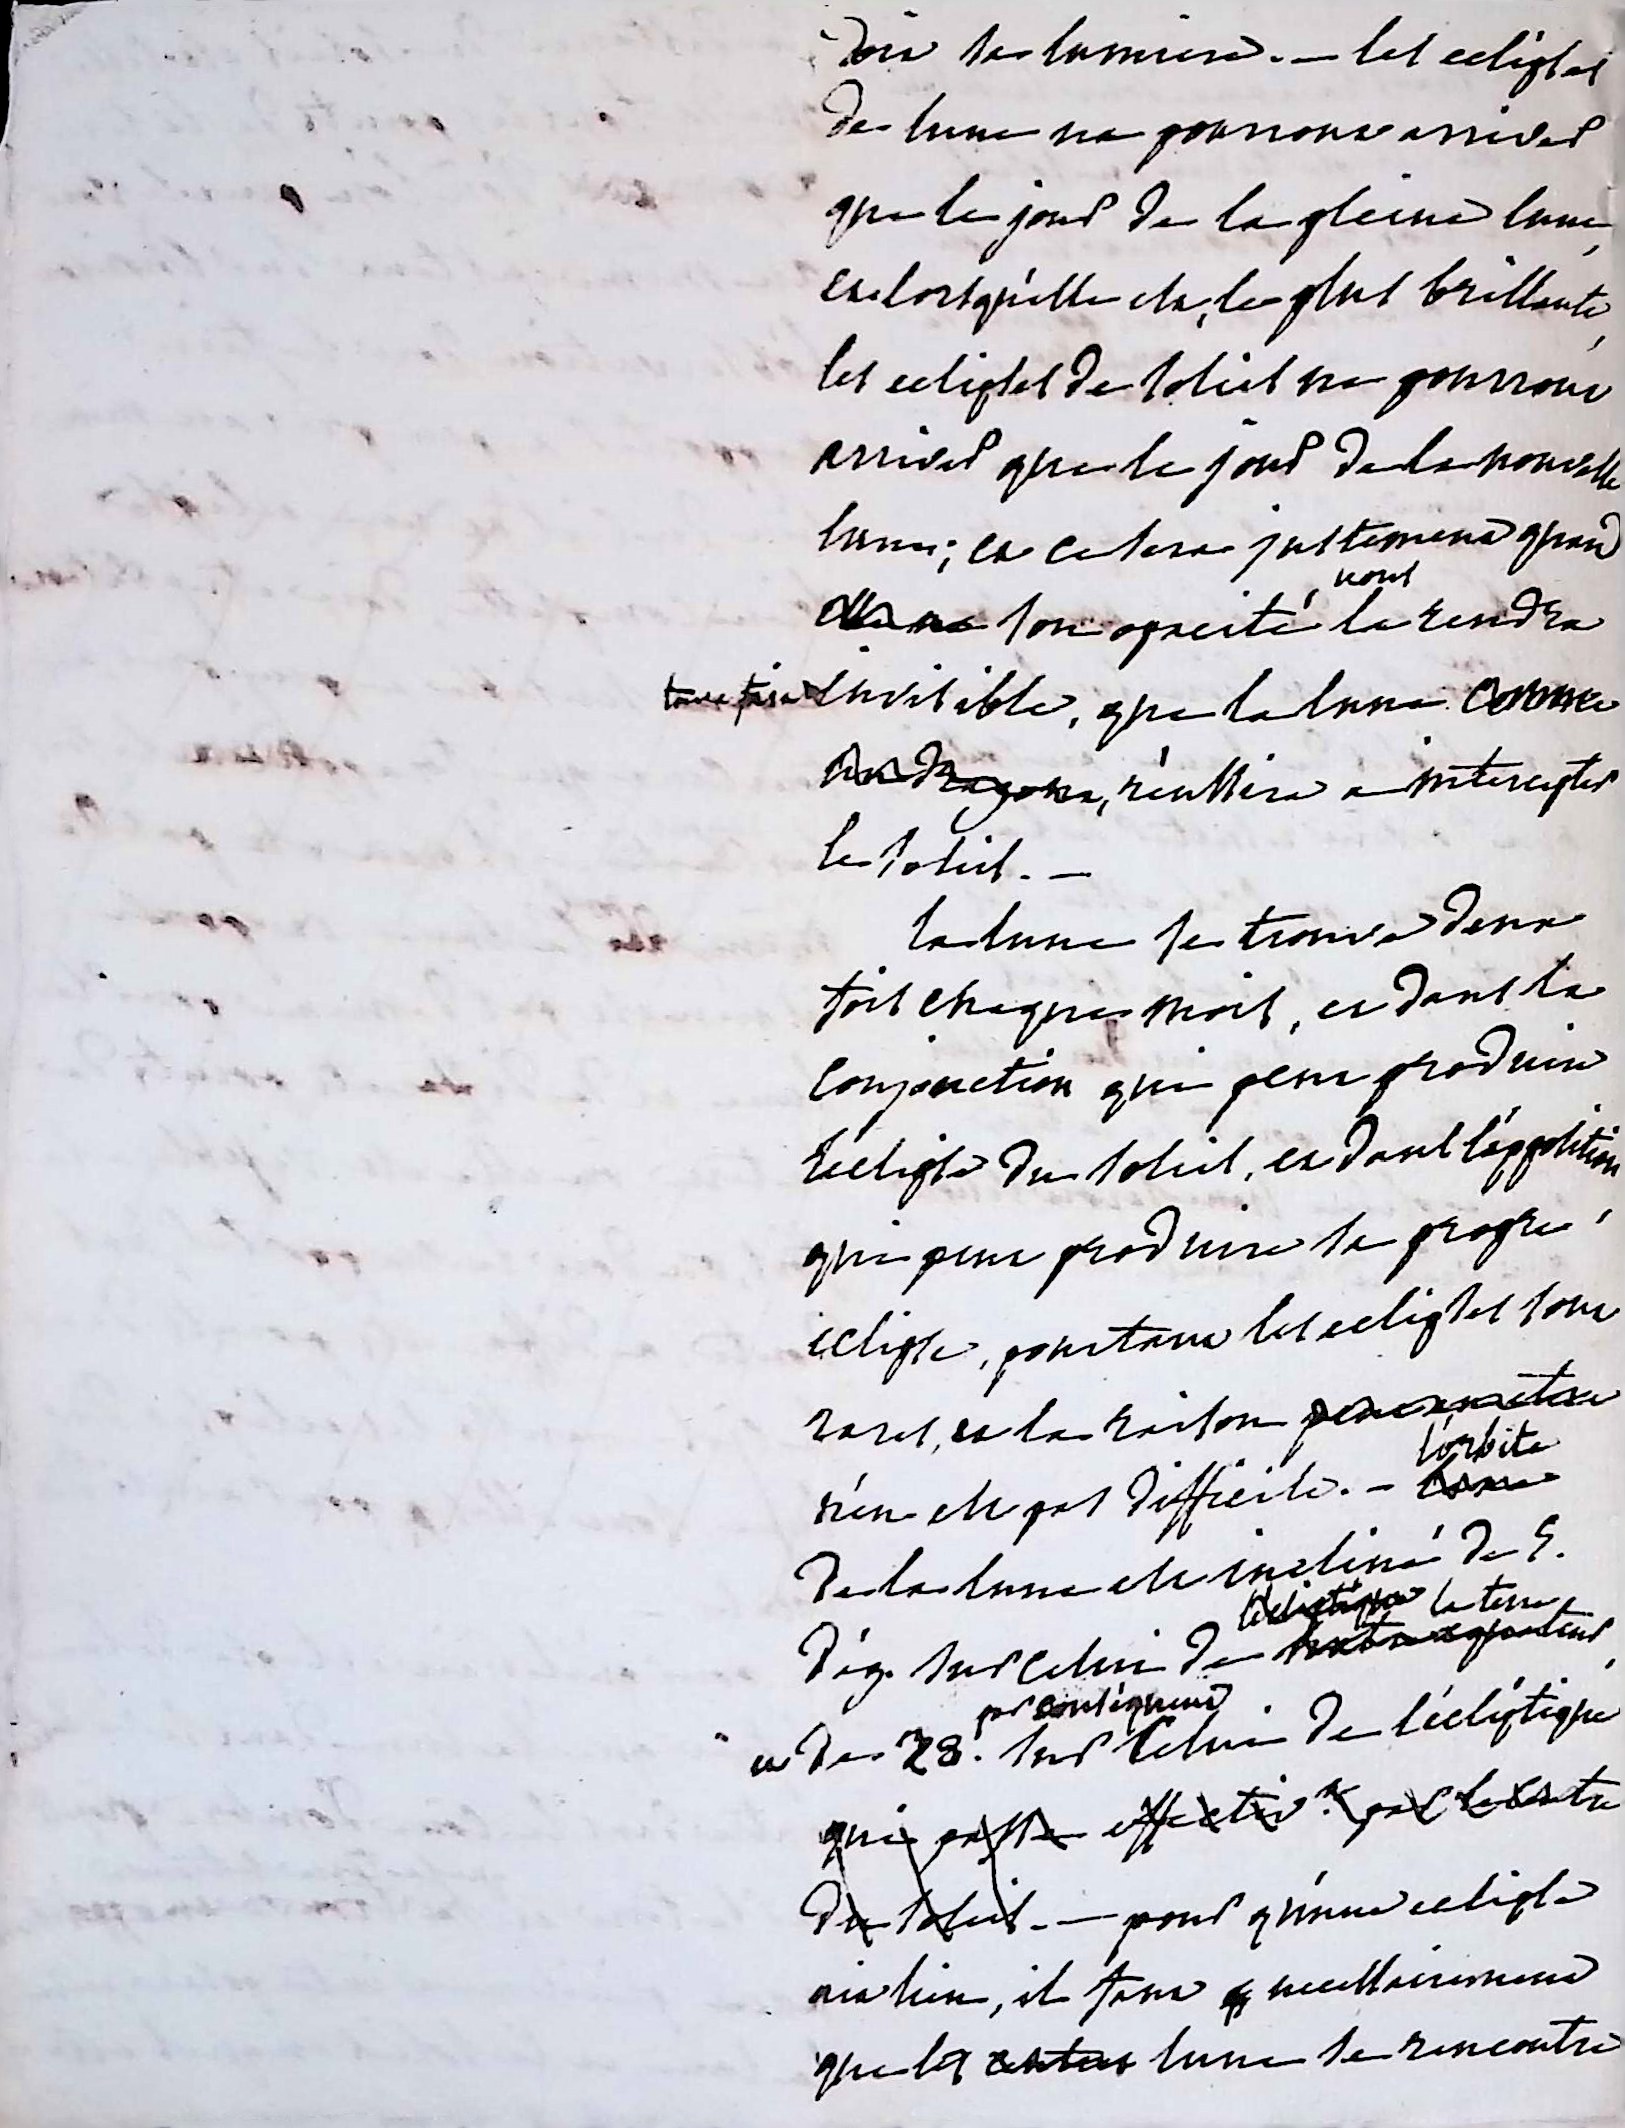 doit sa lumiere. — les eclipses
de lune ne pourront arriver
que le jour de la pleine lune,
et lorsqu'elle est, le plus brillante,
les eclipses de soleil ne pourront
arriver que le jour de la nouvelle
lune; et ce sera justement quand
elle ne son opacité nous la rendra
invisible, que la lune comme
un dragon, réussira a intercepter
le soleil. —
la lune se trouve deux
fois chaque mois, et dans la
conjonction qui peut produire
l'eclipse du soleil, et dans l'opposition
qui peut produire sa propre
éclipse, pourtant les eclipses sont
rares, et la raison
n'en est pas difficile. — l'orbite
de la lune est incliné de 5.
dég. sur celui de l'écliptique la terre,
et de 28. par conséquent sur celui de l'écliptique
qui passe effectiv.t par le centre
du soleil. — pour qu'une eclipse
ait lieu, il faut necessairement
que la lune se rencontre